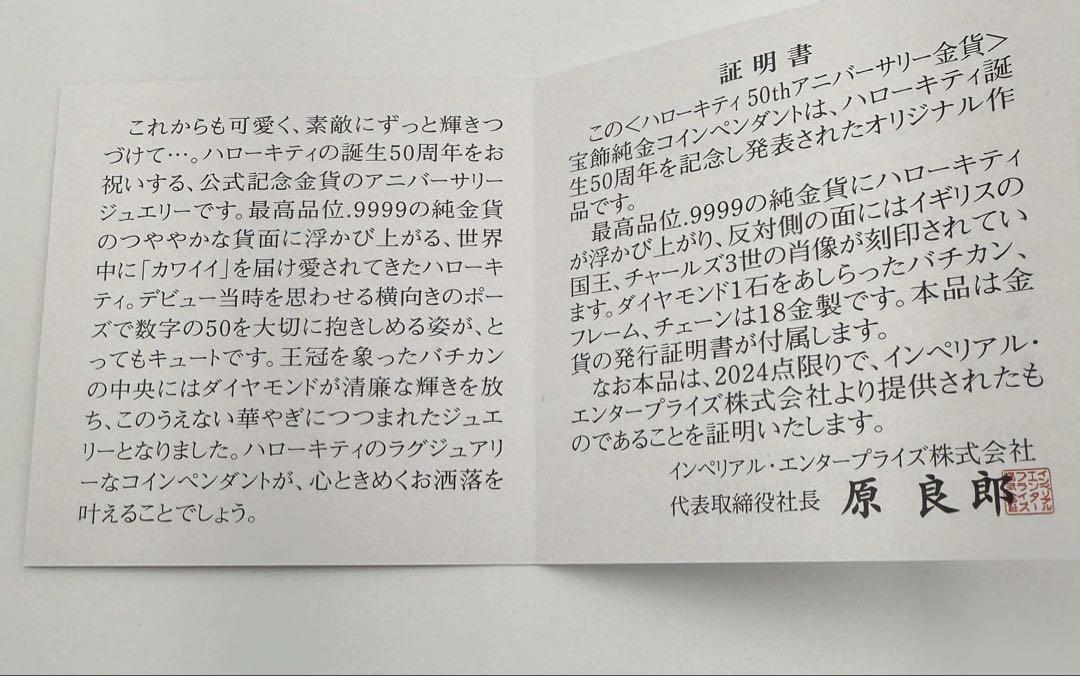 これからも可愛く、素敵にずっと輝きつ
づけて…。ハローキティの誕生50周年をお
祝いする、公式記念金貨のアニバーサリー
ジュエリーです。最高品位.9999の純金貨
のつややかな貨面に浮かび上がる、世界
中に「カワイイ」を届け愛されてきたハローキ
ティ。デビュー当時を思わせる横向きのポー
ズで数字の50を大切に抱きしめる姿が、と
ってもキュートです。王冠を象ったバチカン
の中央にはダイヤモンドが清廉な輝きを放
ち、このうえない華やぎにつつまれたジュエ
リーとなりました。ハローキティのラグジュアリ
ーなコインペンダントが、心ときめくお洒落を
叶えることでしょう。
証明書
この＜ハローキティ 50thアニバーサリー金貨＞
宝飾純金コインペンダントは、ハローキティ誕
生50周年を記念し発表されたオリジナル作
品です。
最高品位.9999の純金貨にハローキティ
が浮かび上がり、反対側の面にはイギリスの
国王、チャールズ3世の肖像が刻印されてい
ます。ダイヤモンド1石をあしらったバチカン、
フレーム、チェーンは18金製です。本品は金
貨の発行証明書が付属します。
なお本品は、2024点限りで、インペリアル・
エンタープライズ株式会社より提供されたも
のであることを証明いたします。
インペリアル・エンタープライズ株式会社
代表取締役社長 原 良郎